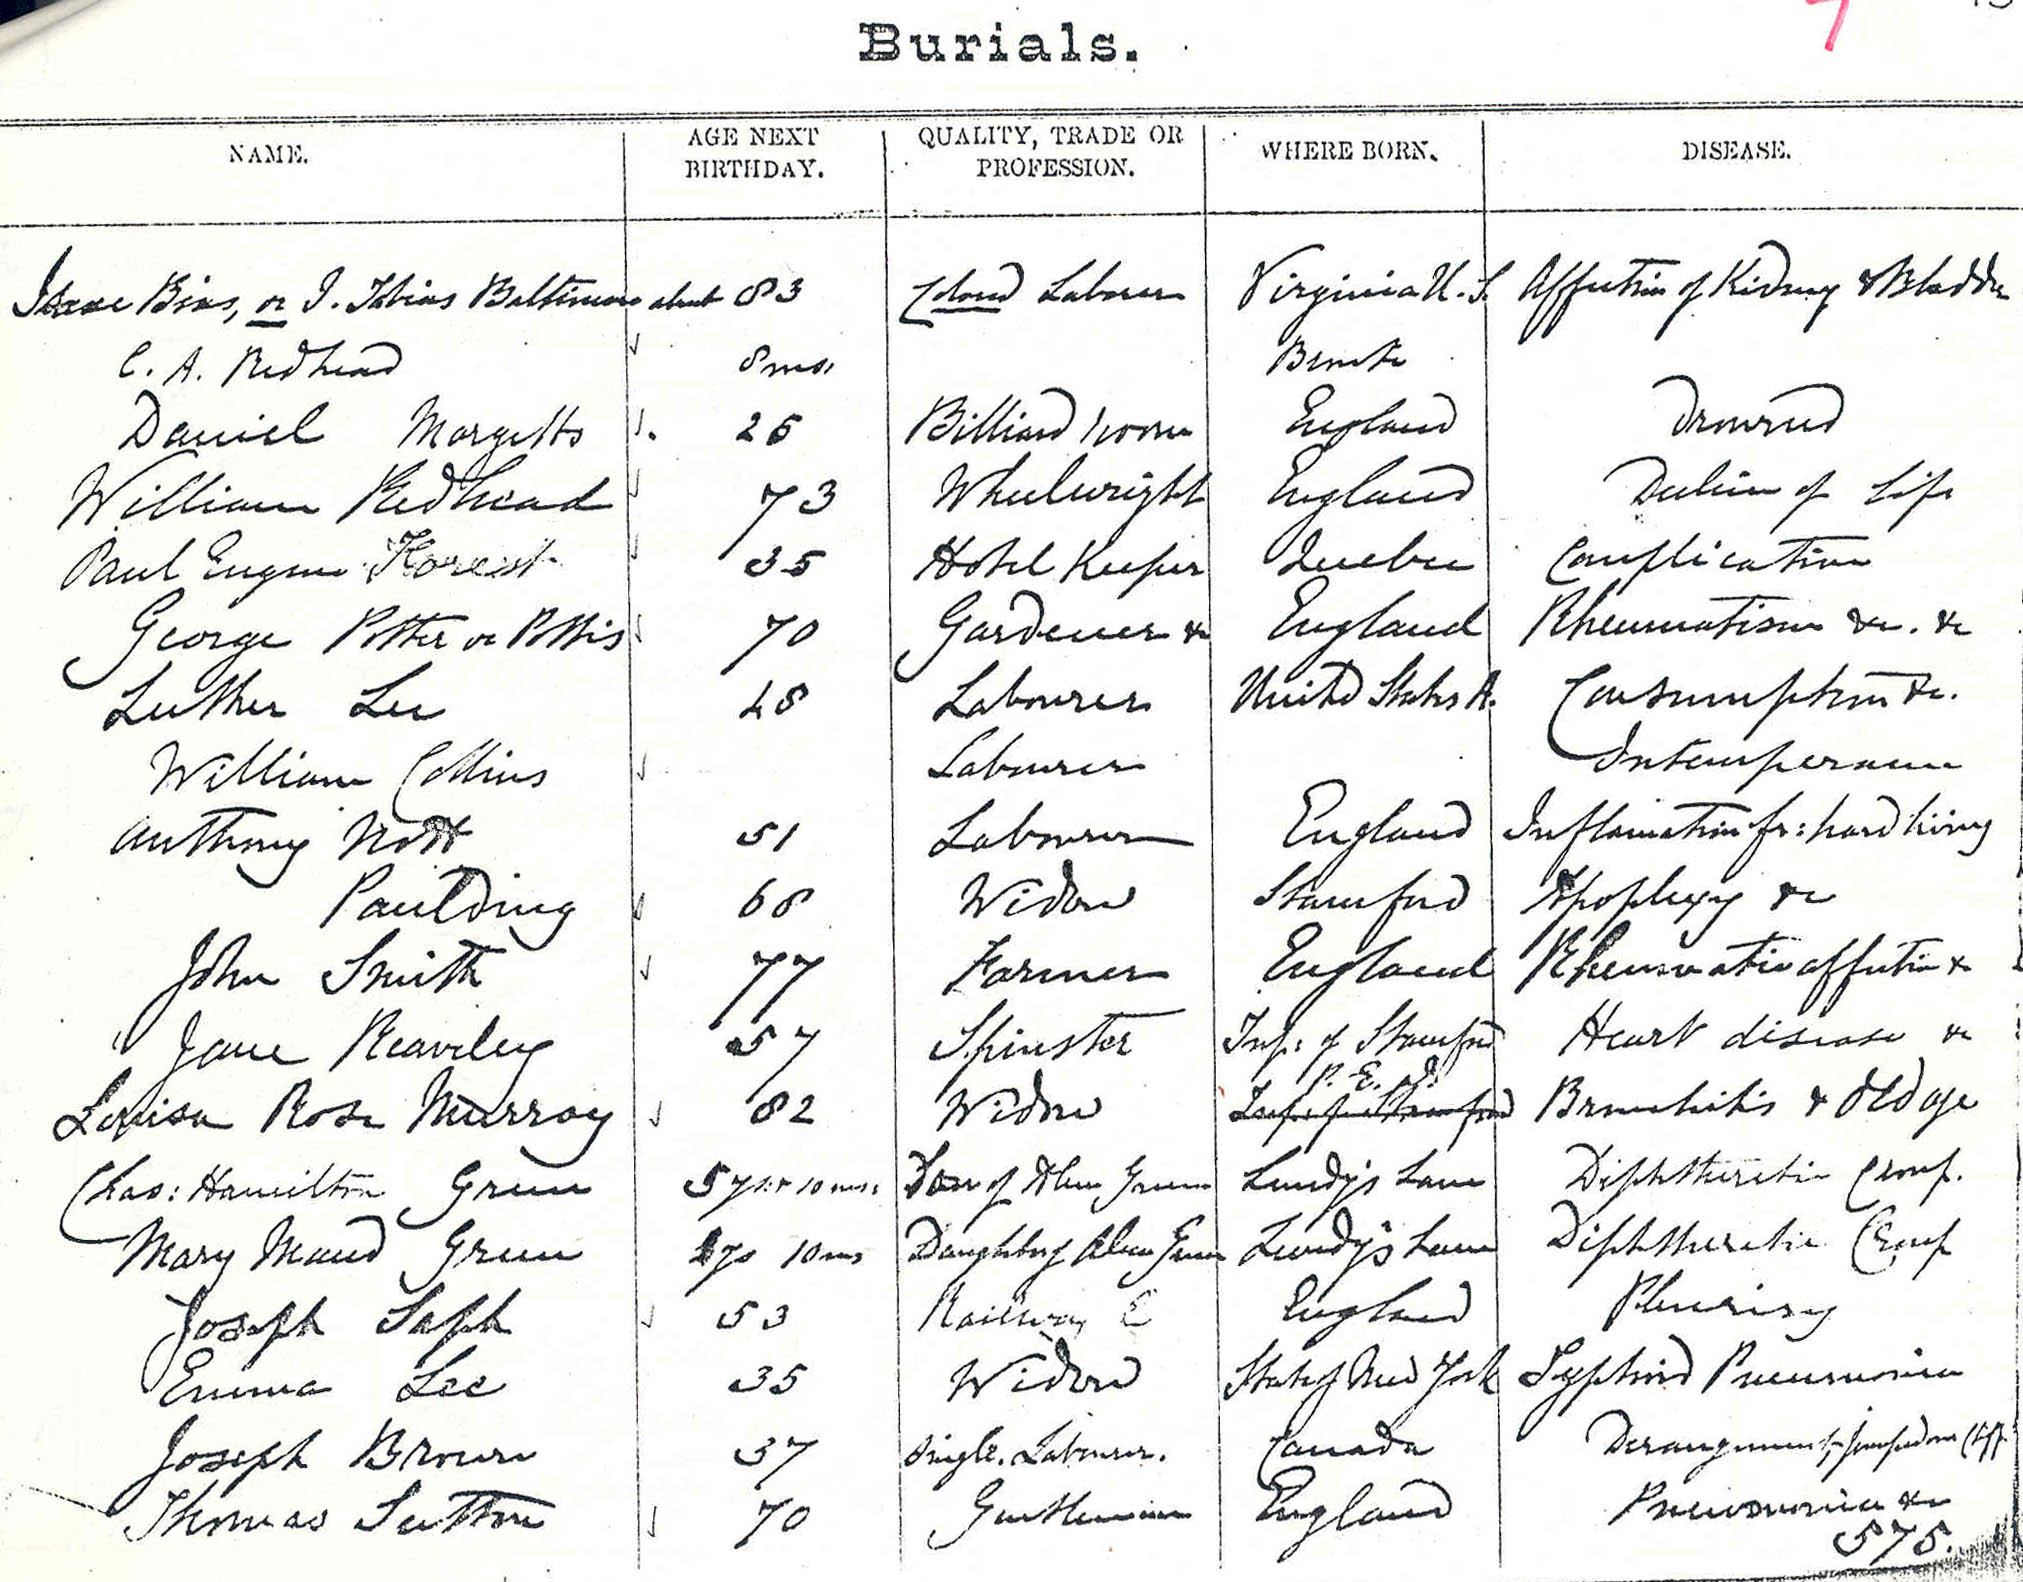 7
Burials.
NAME. AGE NEXT BIRTHDAY. QUALITY, TRADE OR PROFESSION. WHERE BORN. DISEASE.
Isaac Bias, or I. Tobias Baltimore about 83 Colored Labourer Virginia U. S. Affection of Kidney & Bladder
C. A. Redhead 8 mos. Bronte
Daniel Margetts 26 Billiard room England Drowned
William Redhead 73 Wheelwright England Decline of Life
Paul Eugene Forest 35 Hotel Keeper Quebec Complication
George Potter or Pottis 70 Gardener &c England Rheumatism &c. &c
Luther Lee 48 Labourer United States A. Consumption &c.
William Collins Labourer Intemperance
Anthony Nott 51 Labourer England Inflamation fr: hard living
Paulding 68 Widow Stamford Apoplexy &c
John Smith 77 Farmer England Rheumatic affection &c
Jane Reaveley 57 Spinster Tnp: of Stamford Heart disease &c
Louisa Rose Murray 82 Widow P. E. I. Bronchitis & Old age
Chas: Hamilton Green 5 yrs & 10 mos: Son of Alex Green Lundy's Lane Diphtheretic Croup.
Mary Maud Green ys 10 ms Daughter of Alex Green Lundy's Lane Diphtheretic Croup
Joseph Saph 53 Railway E England Pleurisy
Emma Lee 35 Widow State of New York Typhoid Pneumonia
Joseph Brown 37 Single. Labourer. Canada Derangement
Thomas Sutton 70 Gentleman England Pneumonia &c
575.